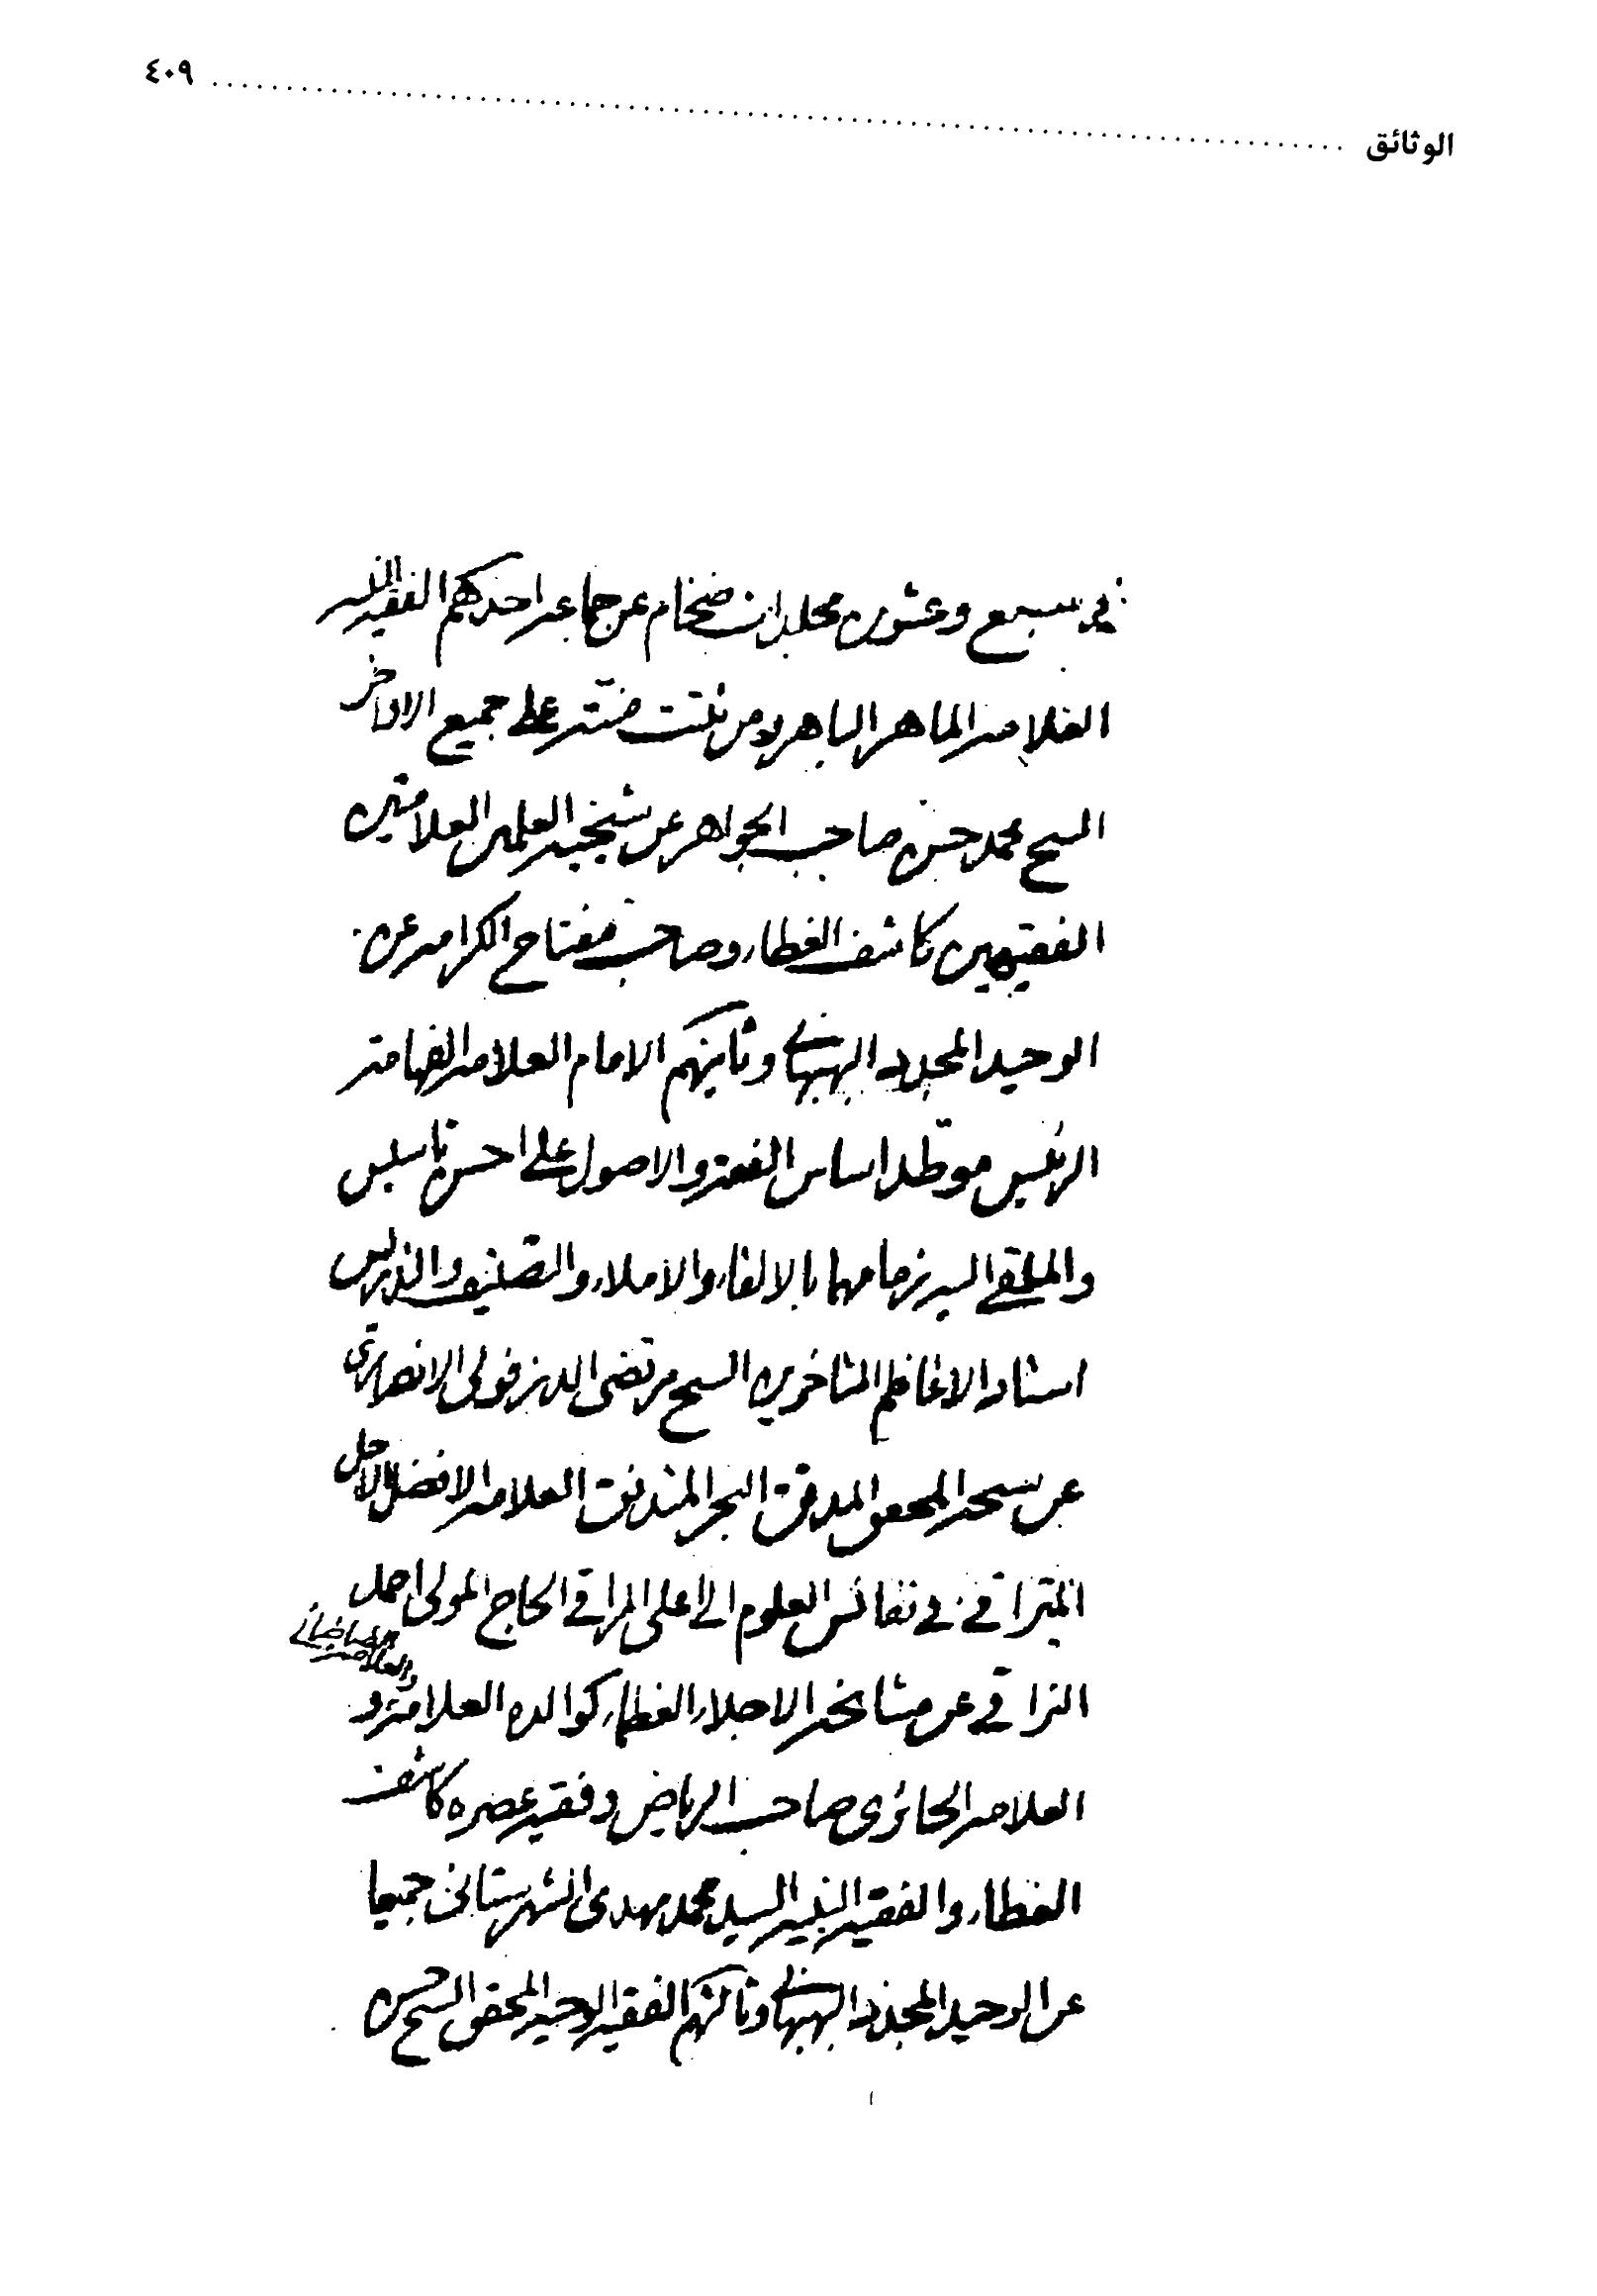 الوثائق ........ ٤٠٩
في سبع وعشرين مجلدات ضخام عن جماعة احدهم الفقيه النبيه
العلامة الماهر الباهر ومن ثبتت منّته على جميع الاواخر
الشيخ محمد حسن صاحب الجواهر عن شيخيه العلمين العلامتين
الفقيهين كاشف الغطاء وصاحب مفتاح الكرامة عن
الوحيد المجدد البهبهاني وثانيهم الامام العلامة الفهامة
الرئيس موطّد اساس الفقه والاصول على احسن تاسيس
والملقى اليه زمامهما بالالقاء والاملاء والتصنيف والتدريس
استاد الاعاظم المتاخرين الشيخ مرتضى الدزفولي الانصاري
عن شيخه المحقق المدقق البحر المتدفق العلامة الافضل الاجل
المتراقي في نفائس العلوم الى اعلى المراقي الحاج المولى احمد
النراقي عن مشايخه الاجلاء العظام كوالده العلامة و
والعلامة الطباطبائي
العلامة الحائري صاحب الرياض وفقيه عصره كاشف
الغطاء والفقيه النبيه السيد محمد مهدي الشهرستاني جميعا
عن الوحيد المجدد البهبهاني وثالثهم الفقيه الوحيد المحقق الشيخ حسن